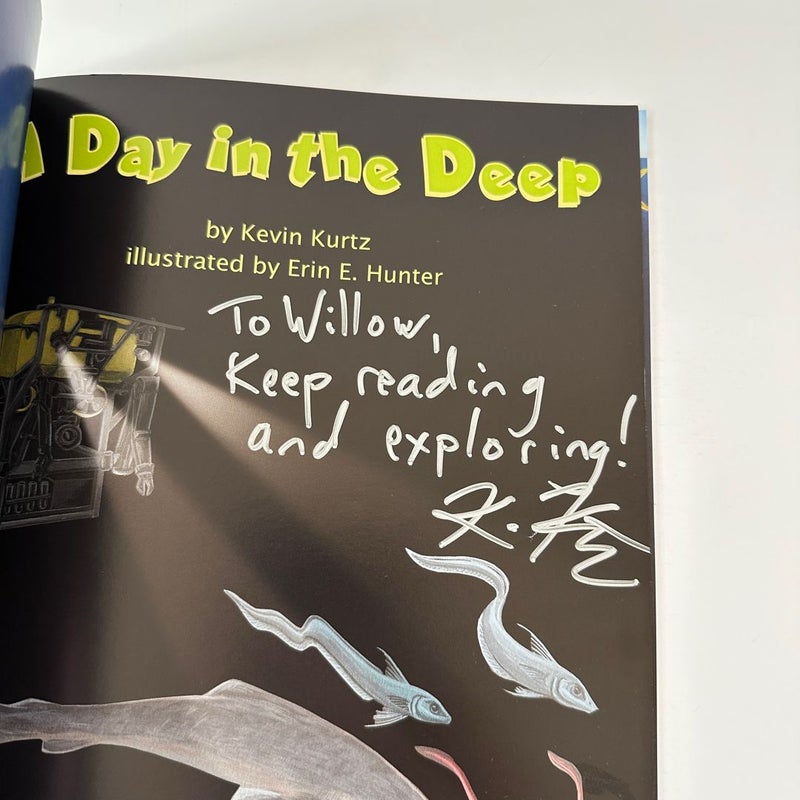 A Day in the Deep
by Kevin Kurtz
illustrated by Erin E. Hunter
To Willow,
Keep reading
and exploring!
K. K